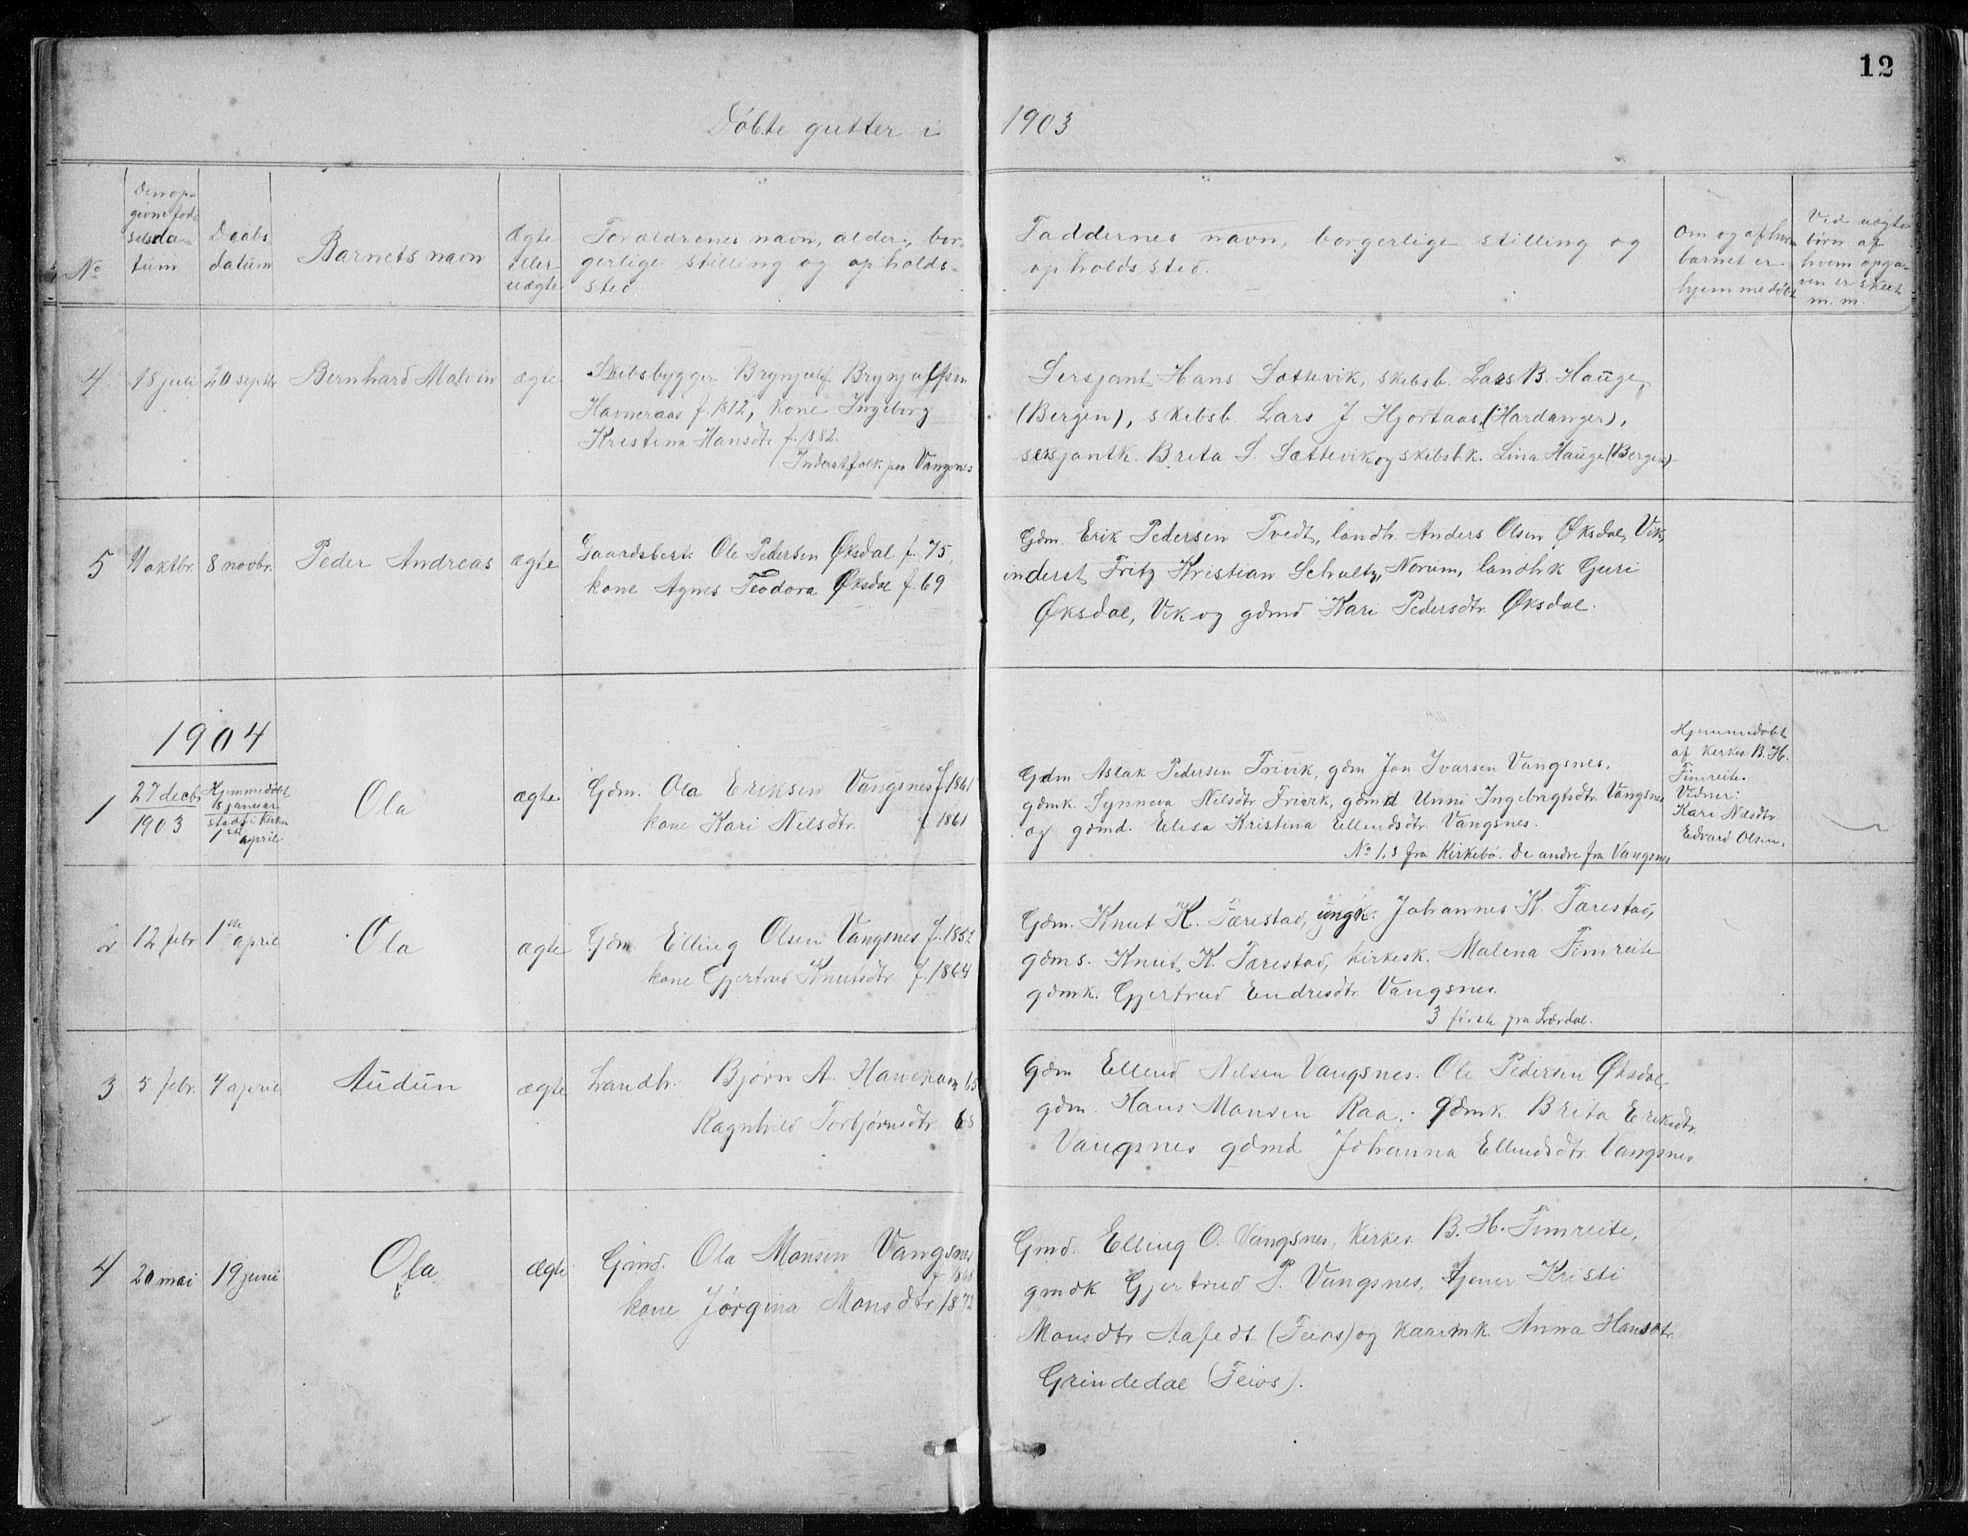 12
Døbte gutter i 1903
No
Den op-
givne fød-
selsda-
tum
Daabs-
datum
Barnets navn
Ægte
eller
uægte
Forældrenes navn, alder, bor-
gerlige stilling og opholds-
sted
Faddernes navn, borgerlige stilling og
opholdssted.
Om og af hvem
barnet er
hjemmedøbt
Ved uægte
børn af
hvem opga-
ven er skeet
m. m.
4
18 juli
20 septbr
Bernhard Malvin
ægte
Skibsbygger Brynjulf Brynjulfsen
Havneraas f. 1872, kone Ingeborg
Kristina Hansdtr. f. 1882.
Inderstfolk paa Vangsnes
Sersjant Hans Sættevik, skibsb. Lars B. Hauge,
(Bergen), skibsb. Lars J Hjortaas (Hardanger),
sersjantk. Brita S. Sættevik og skibsbk. Lina Hauge (Bergen)
5
11 oktbr.
8 novbr.
Peder Andreas
ægte
Gaardsbest. Ole Pedersen Øksdal f. 75,
kone Agnes Teodora Øksdal f. 69
Gdm. Erik Pedersen Tvedt, landh. Anders Olsen Øksdal, Vik,
inderst Fritz Kristian Schultz, Norum, landhk Guri
Øksdal, Vik og gdmd Kari Pedersdtr. Øksdal.
1904
1
27 decbr
1903
Hjemmedøbt
8 januar
stadf. i kirken
1ste april
Ola
ægte
Gdm. Ola Eriksen Vangsnes f. 1861
kone Kari Nilsdtr. f. 1861
Gdm. Aslak Pedersen Frivik, gdm Jon Ivarsen Vangsnes,
gdmk. Synneva Nilsdtr Frivik, gdmd. Unni Ingebrigtsdtr. Vangsnes
og gdmd. Elisa Kristina Ellendsdtr. Vangsnes.
No 1, 3 fra Kirkebø. De andre fra Vangsnes
Hjemmedøbt
af kirkes. B. H.
Fimreite.
Vidner:
Kari Nilsdtr.
Edvard Olsen.
2
12 febr
1ste april
Ola
ægte
Gdm. Elling Olsen Vangsnes f. 1852
kone Gjertrud Knutsdtr. f. 1864
Gdm. Knut K. Tærestad, ungk. Johannes K. Tærestad,
gdms. Knut K. Tærestad, kirkesk. Malena Fimreite
gdmk. Gjertrud Endresdtr. Vangsnes.
3 første fra Lærdal.
3
5 febr.
4 april
Audun
ægte
Landh. Bjørn A. Hanekam 65
Ragnhild Torbjørnsdtr. 65
Gdm Ellend Nilsen Vangsnes. Ole Pedersen Øksdal,
gdm. Hans Monsen Raa, gdmk. Brita Eriksdtr.
Vangsnes gdmd Johanna Ellendsdtr. Vangsnes
4
20 mai
19 juni
Ola
ægte
Gmd. Ola Monsen Vangsnes
f. 1868
kone Jørgina Monsdtr. 1872
Gmd. Elling O. Vangsnes, kirkes. B. H. Fimreite,
gmdk Gjertrud P. Vangsnes, tjener Kristi
Monsdtr Aafedt (Feios) og kaarmk. Anna Hansdtr.
Grindedal (Feios).